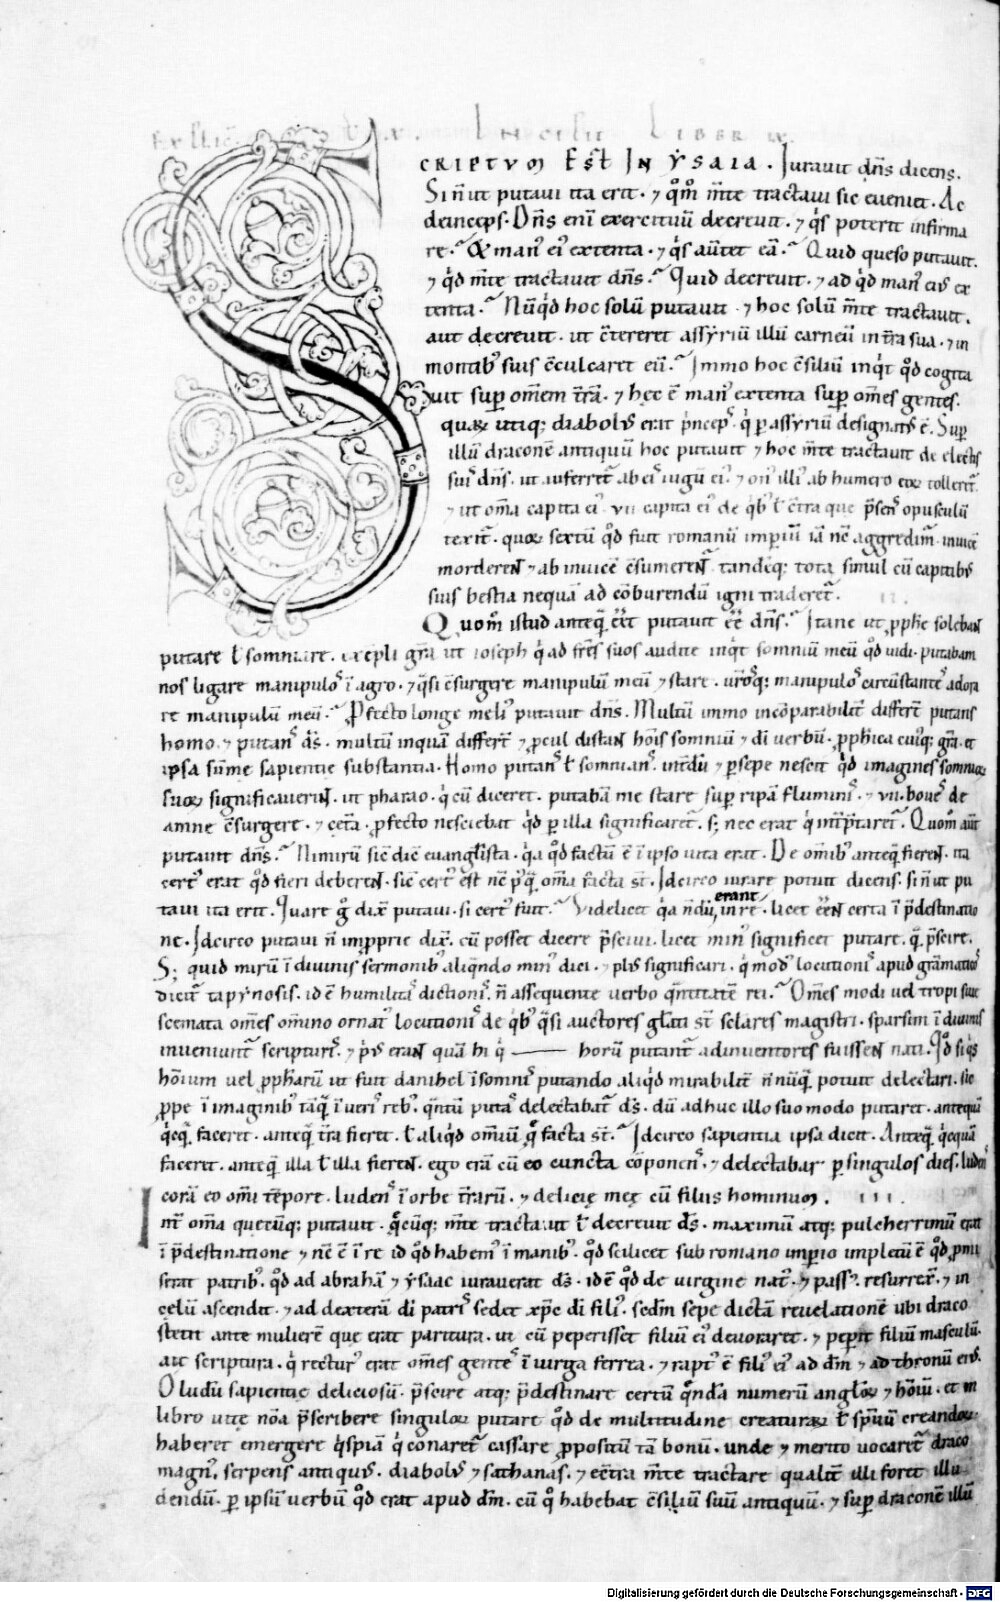 Explic̄ . Incipit Liber ix.
SCRIPTVM EST IN YSAIA . Iurauit dn̄s dicens.
Si n̄ ut putaui ita erit . ⁊ q̊m̄ m̄te tractaui sic eueniet . Ac
deinceps . Dn̄s eni exercituū decreuit . ⁊ q̇s poterit infirma
re . Et man᾽ ei᾽ extenta . ⁊ q̇s au͛tet eā . Quid queso putauit .
⁊ q̇d m̄te tractauit dn̄s . Quid decreuit . ⁊ ad q̇d man᾽ ei᾽ ex
tenta . Nūq̇d hoc solū putauit . ⁊ hoc solū m̄te tractauit .
aut decreuit . ut c̄tereret assyriū illū carneū in t̄ra sua . ⁊ in
montib᾽ suis c̄culcaret eū . Immo hoc c̄siliū inq̇t qd̄ cogita
uit sup̱ om̄em t̄rā . ⁊ hec ē man᾽ extenta sup̱ om̄es gentes .
quaꝝ utiq; diabol᾽ erat ṗnceps . q̇ p̱ assyriū designat᾽ ē . Sup̱
illū draconē antiquū hoc putauit ⁊ hoc m̄te tractauit de electis
suis dn̄s . ut auferret ab ei᾽ iugū ei᾽ . ⁊ on᾽ illi᾽ ab humero eoꝝ tolleret᾽
⁊ ut om̄a capita ei᾽ . vii capita ei᾽ de q̇b᾽ ł c̄tra que p̄sens opusculū
texit᾽ . quoꝝ sextū qd̄ fuit romanū imperiū iā nē aggredim᾽ inuicē
morderent ⁊ ab inuicē c̄sumerent᾽ tandēq; tota simul cū capitib᾽
suis bestia nequā ad cōburendū igni traderet᾽ . II .
Quom̊ istud anteq̄ eēt putauit eē dn̄s . Itane ut ꝓph̄e solebant
putare ł somniare . exēpli gr̄a ut ioseph q̇ ad fr̄es suos audite inq̇t somniū meū qd̄ uidi . putabam
nos ligare manipulos ī agro . ⁊ q̄si c̄surgere manipulū meū ⁊ stare . ur̄osq; manipulos circūstantes adora
re manipulū meū . Ꝓfecto longe meli᾽ putauit dn̄s . Multū immo incōparabilit᾽ differt putans
homo . ⁊ putans ds̄ . multū inquā differt ⁊ ꝓcul distant hōis somniū ⁊ dī verbū . ꝓph̄ica cuiq; gr̄a . et
ipsa sūme sapientie substantia . Homo putans ł somnians . int̄dū ⁊ p̱sepe nescit q̇d imagines somnioꝝ
suoꝝ significauerint . ut pharao . q̇ cū diceret . putabā me stare sup̱ ripā fluminis . ⁊ vii . boues de
amne c̄surgere . ⁊ cet̄a . ꝓfecto nesciebat q̇d p̱ illa significaret᾽ . s; nec erat q̇ int̄p̄taret᾽ . Quom̊ aūt
putauit dn̄s . Nimirū sic̄ dic̄ euangl̄ista . q̇a qd̄ factū ē ī ipso uita erat . De om̄ib᾽ anteq̄ fierent . ita
cert᾽ erat qd̄ fieri deberent . sic̄ cert᾽ est nē p᾽q̄ om̄a facta st̄ . Idcirco iurare potuit dicens . si n̄ ut pu
taui ita erit . Quare g̊ dix̄ putaui . si cert᾽ fuit . Videlicet q̇a n̄dū erant in re . licet eēnt certa ī p̄destinatio
ne . Idcirco putaui n̄ imꝓprie dix̄ . cū posset dicere p̄sciui . licet min᾽ significet putare . q̄ p̄scire .
S; quid mirū ī diuinis sermonib᾽ aliq̄ndo min᾽ dici . ⁊ pl᾽ significari . q̇ mod᾽ locutionis apud grāmaticos
dicit᾽ tapynosis . id ē humilitas dictionis . n̄ assequente uerbo q̄ntitatē rei . Om̄es modi uel tropi siue
scemata om̄es om̄ino ornat᾽ locutionis de q̇b᾽ q̄si auctores gl̄ati st̄ sclares magistri . sparsim ī diuinis
inueniunt᾽ scripturis . ⁊ p᾽us erant quā hi q̇ —— horū putant᾽ adinuentores fuissent nati . Qd̄ si q̇s
hōium uel ꝓph̄arū ut fuit danihel ī somnis putando aliq̇d mirabilit᾽ n̄ nūq̄ potuit delectari . sic
ꝓpe ī imaginib᾽ tāq̄ ī ueris reb᾽ . q̄ntū putas delectabat᾽ ds̄ . dū adhuc illo suo modo putaret . antequā
q̇cq̄ faceret . anteq̄ t̄ra fieret . ł aliq̇d om̄iū q̄ facta st̄ . Idcirco sapientia ipsa dicit . Anteq̄ q̇cquā
faceret . anteq̄ illa ł illa fierent . ego erā cū eo cuncta cōponens . ⁊ delectabar p̱ singulos dies . ludens
corā eo om̄i tēpore . ludens ī orbe t̄rarū . ⁊ delicię meę cū filiis hominum . III .
Int̄ om̄a quecūq; putauit . q̄cūq; m̄te tractauit ł decreuit ds̄ . maximū atq; pulcherrimū erat
ī p̄destinatione ⁊ nē ē ī re id qd̄ habem᾽ ī manib᾽ . qd̄ scilicet sub romano imperio impletū ē qd̄ ꝓmi
serat patrib᾽ . qd̄ ad abrahā ⁊ ysaac iurauerat ds̄ . id ē qd̄ de uirgine nat᾽ . ⁊ pass᾽ . resurrex̄ . ⁊ in
celū ascendit . ⁊ ad dexterā dī patris sedet xp̄c dī fili᾽ . sedm̄ sepe dictā reuelationē ubi draco
stetit ante mulierē que erat paritura . ut cū peperisset filiū ei᾽ deuoraret . ⁊ peperit filiū masculū .
ait scriptura . q̇ rectur᾽ erat om̄es gentes ī uirga ferrea . ⁊ rapt᾽ ē fili᾽ ei᾽ ad dm̄ ⁊ ad thronū ei᾽ .
O ludū sapientię deliciosū . p̄scire atq; p̄destinare certū q̄ndā numerū angl̄oꝝ ⁊ hōiū . et in
libro uitę nōa p̄scribere singuloꝝ putare qd̄ de multitudine creaturaꝝ ł sp̄uū creandoꝝ
haberet emergere q̇spiā q̇ conaret᾽ cassare ꝓpositū tā bonū . unde ⁊ merito uocaret᾽ draco
magn᾽ . serpens antiquus . diabol᾽ ⁊ sathanas . ⁊ ec̄tra m̄te tractare qualit᾽ illi foret illu
dendū . p̱ ipsū verbū qd̄ erat apud dm̄ . cū q̊ habebat c̄siliū suū antiquū . ⁊ sup̱ draconē illū
Digitalisierung gefördert durch die Deutsche Forschungsgemeinschaft - DFG